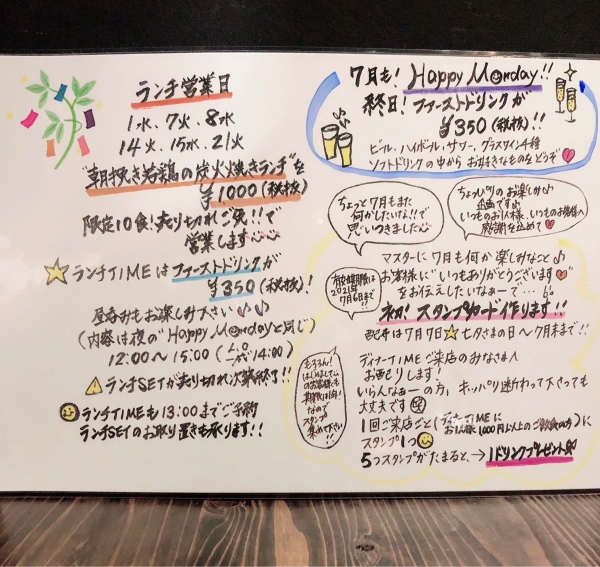 ランチ営業日
1水、7火、8水
14火、15水、21火
"朝挽き若鶏の炭火焼きランチ"を
¥1000(税抜)
限定10食!売り切れご免!!で
営業します〜〜
☆ランチTIMEはファーストドリンクが
¥350(税抜)!
昼呑みもお楽しみ下さい♪♪
(内容は夜の"Happy Mondayと同じ)
12:00〜15:00(L.O 14:00)
⚠ランチSETが売り切れ次第終了!!
ランチTIMEも13:00までご予約
ランチSETのお取り置きも承ります!!
7月も!Happy Monday!!
終日!ファーストドリンクが
¥350(税抜)!!
ビール、ハイボール、サワー、グラスワイン4種
ソフトドリンクの中からお好きなものをどうぞ♥
ちょっと7月もまた
何かしたいな!!で
思いつきました〜
ちょっぴりのお楽しみ♪
企画です♪
いつものお1人様、いつものお皆様へ
感謝を込めて♥
マスターに7月も何か楽しみなこと♪
お客様に"いつもありがとうございます♥
をお伝えしたいなぁーで…
有効期限は
2021年
7月6日まで!!
初!スタンプカード作ります!!
配布は7月7日☆七夕さまの日〜7月末まで!!
ディナーTIMEご来店のみなさまへ
お配りします!
いらんなぁーの方、キッパリ断わって下さっても
大丈夫です
もちろん!
はじめましての
お客様にも
期限は1年!
なので
スタンプ
集めて下さい
!!
1回ご来店ごと(ディナーTIMEに
お1人様1,000円以上のご飲食の方)に
スタンプ1つ
5つスタンプがたまると、→1ドリンクプレゼント